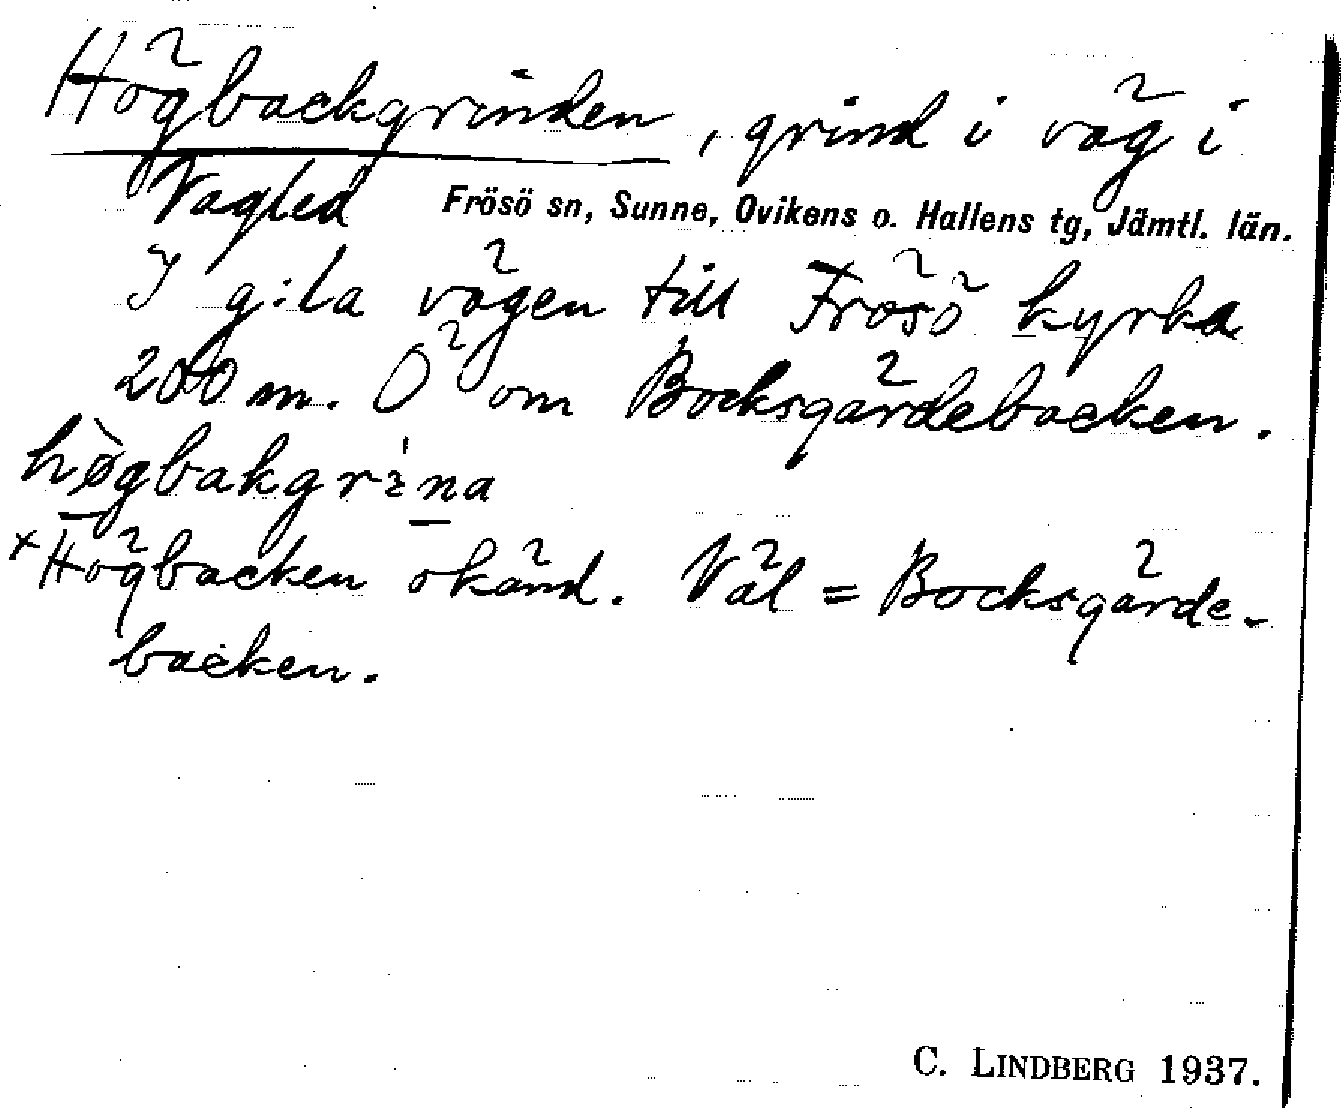 Högbackgrinden, grind i väg i
Vagled Frösö sn, Sunne, Ovikens o. Hallens tg, Jämtl. län.
I g:la vägen till Frösö kyrka
200 m. Ö om Bocksgärdebacken.
hø̀gbakgri̇́na
×Högbacken okänd. Väl = Bocksgärde-
backen.
C. LINDBERG 1937.